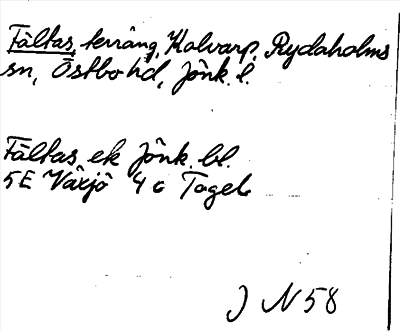 Fältas, terräng, Kalvarp, Rydaholms
sn, Östbo hd, Jönk. l.
Fältas, ek Jönk. bl.
5E Växjö 4 c Tagel
J N 58